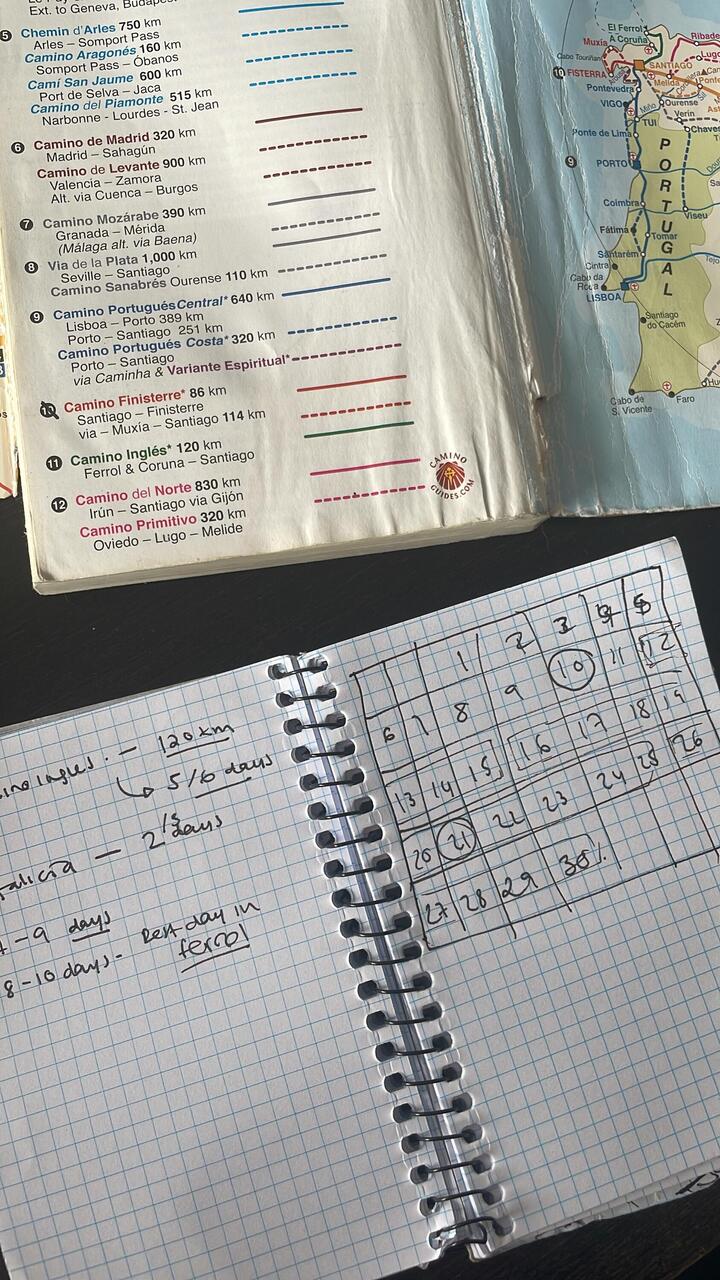 Ext. to Geneva, Budapest
5 Chemin d'Arles 750 km
Arles – Somport Pass
Camino Aragonés 160 km
Somport Pass – Óbanos
Camí San Jaume 600 km
Port de Selva – Jaca
Camino del Piamonte 515 km
Narbonne - Lourdes - St. Jean
6 Camino de Madrid 320 km
Madrid – Sahagún
Camino de Levante 900 km
Valencia – Zamora
Alt. via Cuenca – Burgos
7 Camino Mozárabe 390 km
Granada – Mérida
(Málaga alt. via Baena)
8 Via de la Plata 1,000 km
Seville – Santiago
Camino Sanabrés Ourense 110 km
9 Camino Portugués Central* 640 km
Lisboa – Porto 389 km
Porto – Santiago 251 km
Camino Portugués Costa* 320 km
Porto – Santiago
via Caminha & Variante Espiritual*
10 Camino Finisterre* 86 km
Santiago – Finisterre
via – Muxía – Santiago 114 km
11 Camino Inglés* 120 km
Ferrol & Coruna – Santiago
12 Camino del Norte 830 km
Irún – Santiago via Gijón
Camino Primitivo 320 km
Oviedo – Lugo – Melide
CAMINO
GUIDES.COM
El Ferrol
A Coruña
Ribade
Muxia
Lugo
Cabo Touriñan
SANTIAGO
10 FISTERRA
Melide
Pontevedra
Ourense
VIGO
Miño
Verin
TUI
Ponte de Lima
Chaves
9
PORTO
PORTUGAL
Coimbra
Viseu
Fátima
Tomar
Santarém
Cintra
Tejo
Cabo da Roca
LISBOA
Santiago
do Cacém
Cabo de
S. Vicente
Faro
ino Ingles. – 120km
5/6 days
alicia – 2/3 days
7 – 9 days
8 – 10 days - Rest day in
ferrol
1 2 3 4 5
6 7 8 9 10 11 12
13 14 15 16 17 18 19
20 21 22 23 24 25 26
27 28 29 30